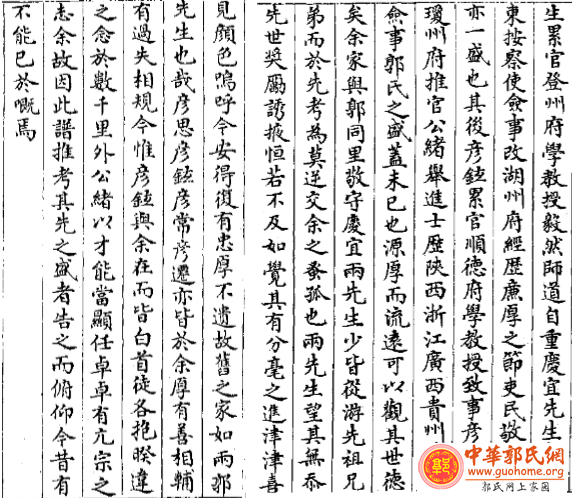 生累官登州府學教授毅然師道自重慶宜先生
東按察使僉事改湖州府經歷廉厚之節吏民敬
亦一盛也其後彥鉉累官順德府學教授致事彥
瓊州府推官公緒舉進士歷陝西浙江廣西貴州
僉事郭氏之盛蓋未已也源厚而流遠可以觀其世德
矣余家與郭同里敬守慶宜兩先生少皆從游先祖兄
弟而於先考為莫逆交余之蚤孤也兩先生望其無忝
先世獎勵誘掖恒若不及如覺其有分毫之進津津喜
見顏色嗚呼今安得復有忠厚不遺故舊之家如兩郭
先生也哉彥思彥鉉彥常彥遷亦皆於余厚有善相輔
有過失相規今惟彥鉉與余在而皆白首徒各抱暌違
之念於數千里外公緒以才能當顯任卓卓有亢宗之
志余故因此譜推考其先之盛者告之而俯仰今昔有
不能已於嘅焉
中華郭氏網
www.guohome.org
郭氏网上家园